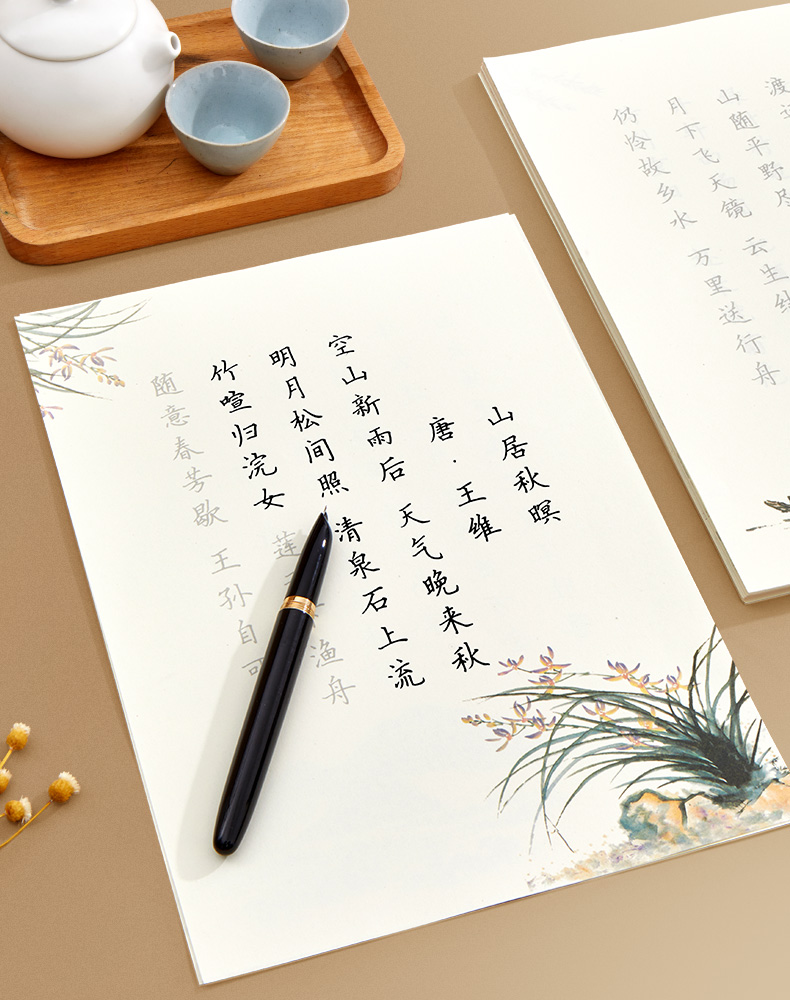 山居秋暝
唐·王维
空山新雨后 天气晚来秋
明月松间照 清泉石上流
竹喧归浣女 莲 渔舟
随意春芳歇 王孙自可
渡
山随平野尽 云生结
月下飞天镜
仍怜故乡水 万里送行舟